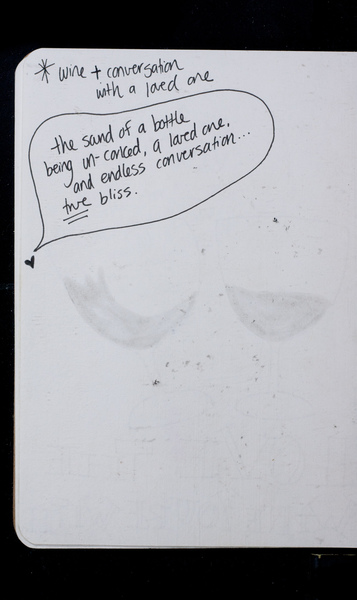 * wine + conversation
with a loved one
the sund of a bottle
being un-corked, a loved one,
and endless conversation...
true bliss.